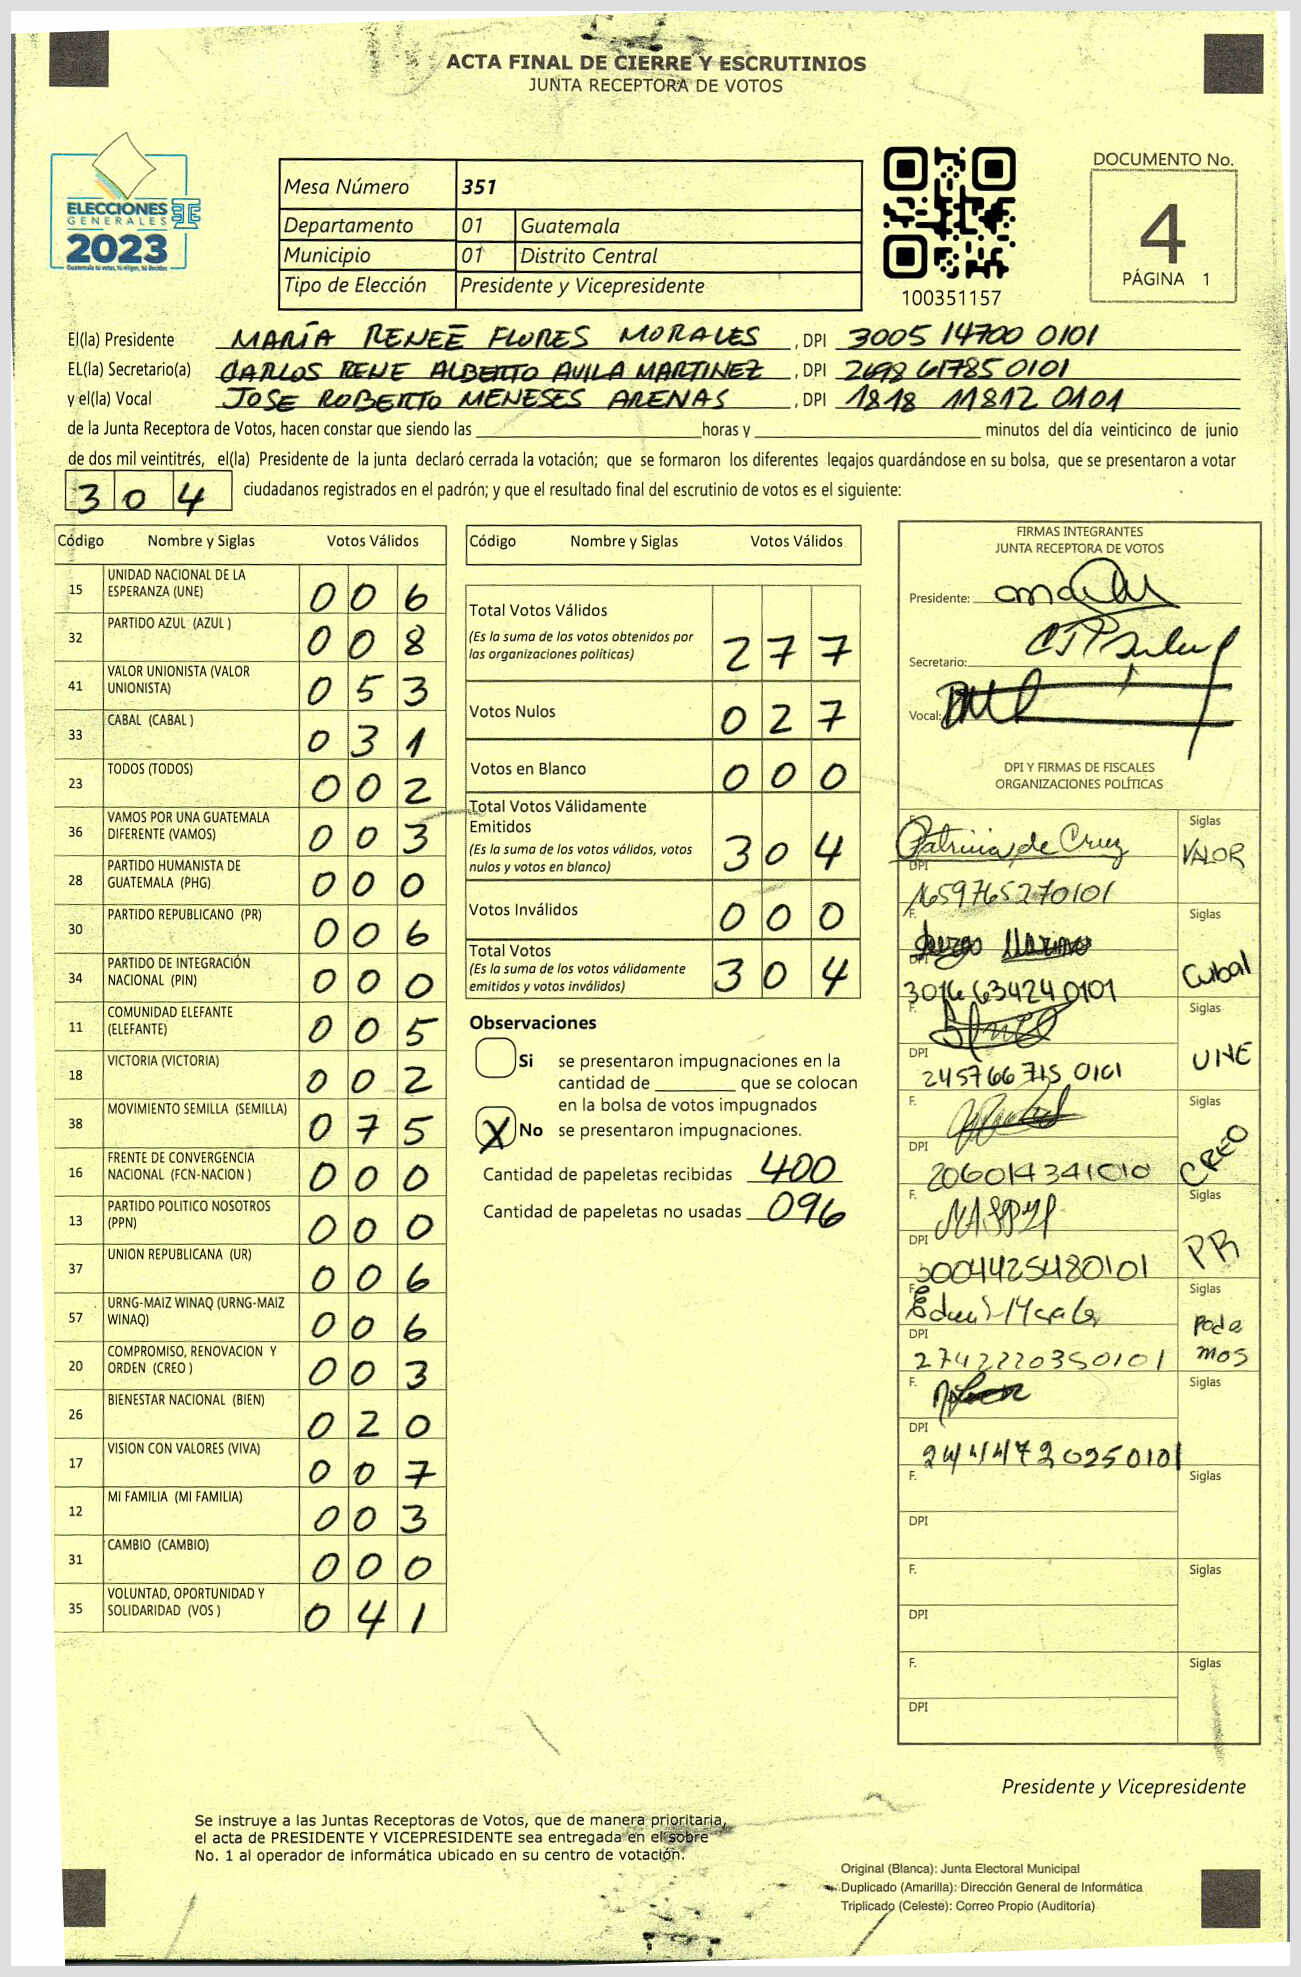 ACTA FINAL DE CIERRE Y ESCRUTINIOS
JUNTA RECEPTORA DE VOTOS
ELECCIONES
GENERALES
2023
Mesa Número 351
Departamento 01 Guatemala
Municipio 01 Distrito Central
Tipo de Elección Presidente y Vicepresidente
100351157
DOCUMENTO No.
4
PÁGINA 1
El(la) Presidente MARÍA RENEÉ FLORES MORALES, DPI 3005 14700 0101
EL(la) Secretario(a) CARLOS RENE ALBERTO AVILA MARTINEZ, DPI 2698 61785 0101
y el(la) Vocal JOSE ROBERTO MENESES ARENAS, DPI 1818 11812 0101
de la Junta Receptora de Votos, hacen constar que siendo las horas y minutos del día veinticinco de junio
de dos mil veintitrés, el(la) Presidente de la junta declaró cerrada la votación; que se formaron los diferentes legajos guardándose en su bolsa, que se presentaron a votar
304 ciudadanos registrados en el padrón; y que el resultado final del escrutinio de votos es el siguiente:
Código Nombre y Siglas Votos Válidos
15 UNIDAD NACIONAL DE LA
ESPERANZA (UNE) 006
32 PARTIDO AZUL (AZUL ) 008
41 VALOR UNIONISTA (VALOR
UNIONISTA) 053
33 CABAL (CABAL ) 031
23 TODOS (TODOS) 002
36 VAMOS POR UNA GUATEMALA
DIFERENTE (VAMOS) 003
28 PARTIDO HUMANISTA DE
GUATEMALA (PHG) 000
30 PARTIDO REPUBLICANO (PR) 006
34 PARTIDO DE INTEGRACIÓN
NACIONAL (PIN) 000
11 COMUNIDAD ELEFANTE
(ELEFANTE) 005
18 VICTORIA (VICTORIA) 002
38 MOVIMIENTO SEMILLA (SEMILLA) 075
16 FRENTE DE CONVERGENCIA
NACIONAL (FCN-NACION ) 000
13 PARTIDO POLITICO NOSOTROS
(PPN) 000
37 UNION REPUBLICANA (UR) 006
57 URNG-MAIZ WINAQ (URNG-MAIZ
WINAQ) 006
20 COMPROMISO, RENOVACION Y
ORDEN (CREO ) 003
26 BIENESTAR NACIONAL (BIEN) 020
17 VISION CON VALORES (VIVA) 007
12 MI FAMILIA (MI FAMILIA) 003
31 CAMBIO (CAMBIO) 000
35 VOLUNTAD, OPORTUNIDAD Y
SOLIDARIDAD (VOS ) 041
Código Nombre y Siglas Votos Válidos
Total Votos Válidos
(Es la suma de los votos obtenidos por
las organizaciones políticas) 277
Votos Nulos 027
Votos en Blanco 000
Total Votos Válidamente
Emitidos
(Es la suma de los votos válidos, votos
nulos y votos en blanco) 304
Votos Inválidos 000
Total Votos
(Es la suma de los votos válidamente
emitidos y votos inválidos) 304
Observaciones
Si se presentaron impugnaciones en la
cantidad de que se colocan
en la bolsa de votos impugnados
X No se presentaron impugnaciones.
Cantidad de papeletas recibidas 400
Cantidad de papeletas no usadas 096
FIRMAS INTEGRANTES
JUNTA RECEPTORA DE VOTOS
Presidente:
Secretario:
Vocal:
DPI Y FIRMAS DE FISCALES
ORGANIZACIONES POLÍTICAS
Patricia de Cruz Siglas VALOR
DPI 1659765270101
F. Siglas Cabal
DPI 3016634240101
F. Siglas UNE
DPI 245766715 0101
F. Siglas CREO
DPI 206014341010
F. Siglas PR
DPI 3004425480101
F. Siglas Podemos
DPI 2742220350101
F. Siglas
DPI
F. Siglas
DPI
F. Siglas
DPI
F. Siglas
DPI
Presidente y Vicepresidente
Se instruye a las Juntas Receptoras de Votos, que de manera prioritaria,
el acta de PRESIDENTE Y VICEPRESIDENTE sea entregada en el sobre
No. 1 al operador de informática ubicado en su centro de votación.
Original (Blanca): Junta Electoral Municipal
Duplicado (Amarilla): Dirección General de Informática
Triplicado (Celeste): Correo Propio (Auditoría)